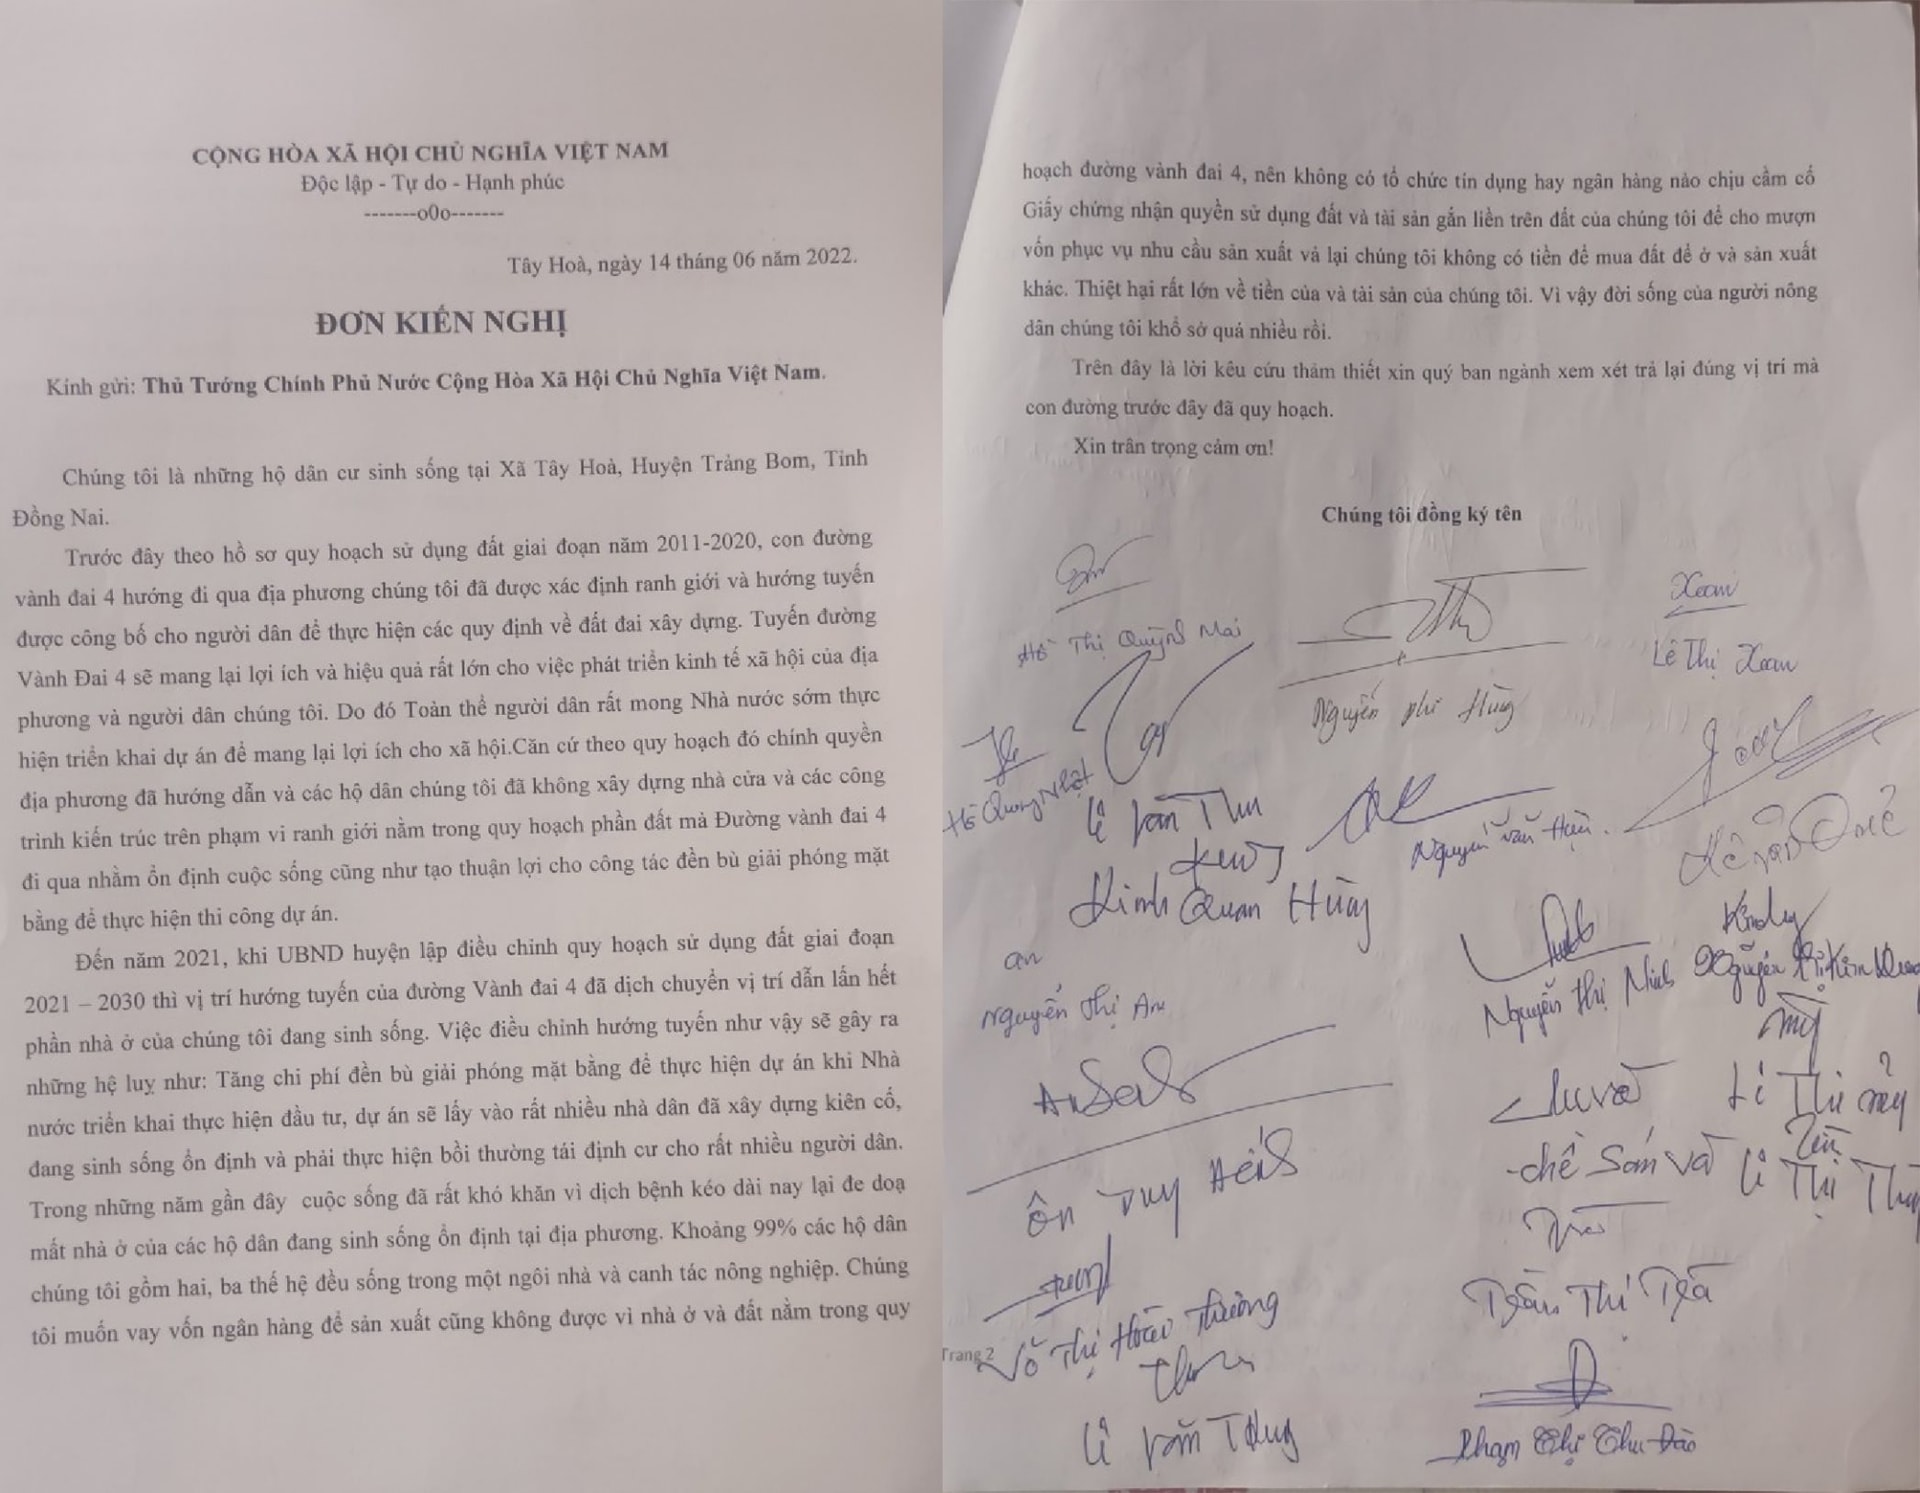 CỘNG HÒA XÃ HỘI CHỦ NGHĨA VIỆT NAM
Độc lập - Tự do - Hạnh phúc
-------o0o-------
Tây Hoà, ngày 14 tháng 06 năm 2022.
ĐƠN KIẾN NGHỊ
Kính gửi: Thủ Tướng Chính Phủ Nước Cộng Hòa Xã Hội Chủ Nghĩa Việt Nam.
Chúng tôi là những hộ dân cư sinh sống tại Xã Tây Hoà, Huyện Trảng Bom, Tỉnh
Đồng Nai.
Trước đây theo hồ sơ quy hoạch sử dụng đất giai đoạn năm 2011-2020, con đường
vành đai 4 hướng đi qua địa phương chúng tôi đã được xác định ranh giới và hướng tuyến
được công bố cho người dân để thực hiện các quy định về đất đai xây dựng. Tuyến đường
Vành Đai 4 sẽ mang lại lợi ích và hiệu quả rất lớn cho việc phát triển kinh tế xã hội của địa
phương và người dân chúng tôi. Do đó Toàn thể người dân rất mong Nhà nước sớm thực
hiện triển khai dự án để mang lại lợi ích cho xã hội.Căn cứ theo quy hoạch đó chính quyền
địa phương đã hướng dẫn và các hộ dân chúng tôi đã không xây dựng nhà cửa và các công
trình kiến trúc trên phạm vi ranh giới nằm trong quy hoạch phần đất mà Đường vành đai 4
đi qua nhằm ổn định cuộc sống cũng như tạo thuận lợi cho công tác đền bù giải phóng mặt
bằng để thực hiện thi công dự án.
Đến năm 2021, khi UBND huyện lập điều chỉnh quy hoạch sử dụng đất giai đoạn
2021 – 2030 thì vị trí hướng tuyến của đường Vành đai 4 đã dịch chuyển vị trí dẫn lấn hết
phần nhà ở của chúng tôi đang sinh sống. Việc điều chỉnh hướng tuyến như vậy sẽ gây ra
những hệ luỵ như: Tăng chi phí đền bù giải phóng mặt bằng để thực hiện dự án khi Nhà
nước triển khai thực hiện đầu tư, dự án sẽ lấy vào rất nhiều nhà dân đã xây dựng kiên cố,
đang sinh sống ổn định và phải thực hiện bồi thường tái định cư cho rất nhiều người dân.
Trong những năm gần đây cuộc sống đã rất khó khăn vì dịch bệnh kéo dài nay lại đe doạ
mất nhà ở của các hộ dân đang sinh sống ổn định tại địa phương. Khoảng 99% các hộ dân
chúng tôi gồm hai, ba thế hệ đều sống trong một ngôi nhà và canh tác nông nghiệp. Chúng
tôi muốn vay vốn ngân hàng để sản xuất cũng không được vì nhà ở và đất nằm trong quy
hoạch đường vành đai 4, nên không có tổ chức tín dụng hay ngân hàng nào chịu cầm cố
Giấy chứng nhận quyền sử dụng đất và tài sản gắn liền trên đất của chúng tôi để cho mượn
vốn phục vụ nhu cầu sản xuất và lại chúng tôi không có tiền để mua đất để ở và sản xuất
khác. Thiệt hại rất lớn về tiền của và tài sản của chúng tôi. Vì vậy đời sống của người nông
dân chúng tôi khổ sở quá nhiều rồi.
Trên đây là lời kêu cứu thảm thiết xin quý ban ngành xem xét trả lại đúng vị trí mà
con đường trước đây đã quy hoạch.
Xin trân trọng cảm ơn!
Chúng tôi đồng ký tên
Hồ Thị Quỳnh Mai
Xoan
Lê Thị Xoan
Nguyễn Phi Hùng
Hồ Quang Nhật
Lê Văn Thu
Nguyễn Văn Hậu
Lê Văn Quế
Kinh Quan Hùng
an
Nguyễn Thị An
Nguyễn Thị Minh
Nguyễn Thị Kim
mỹ
Lê Thị mỹ
Ôn Duy
chề Sám Và
Lê Thị
Trần Thị Trà
Võ Thị Hoài Thường
Trang 2
Lê Văn
Phạm Thị Thu Đào